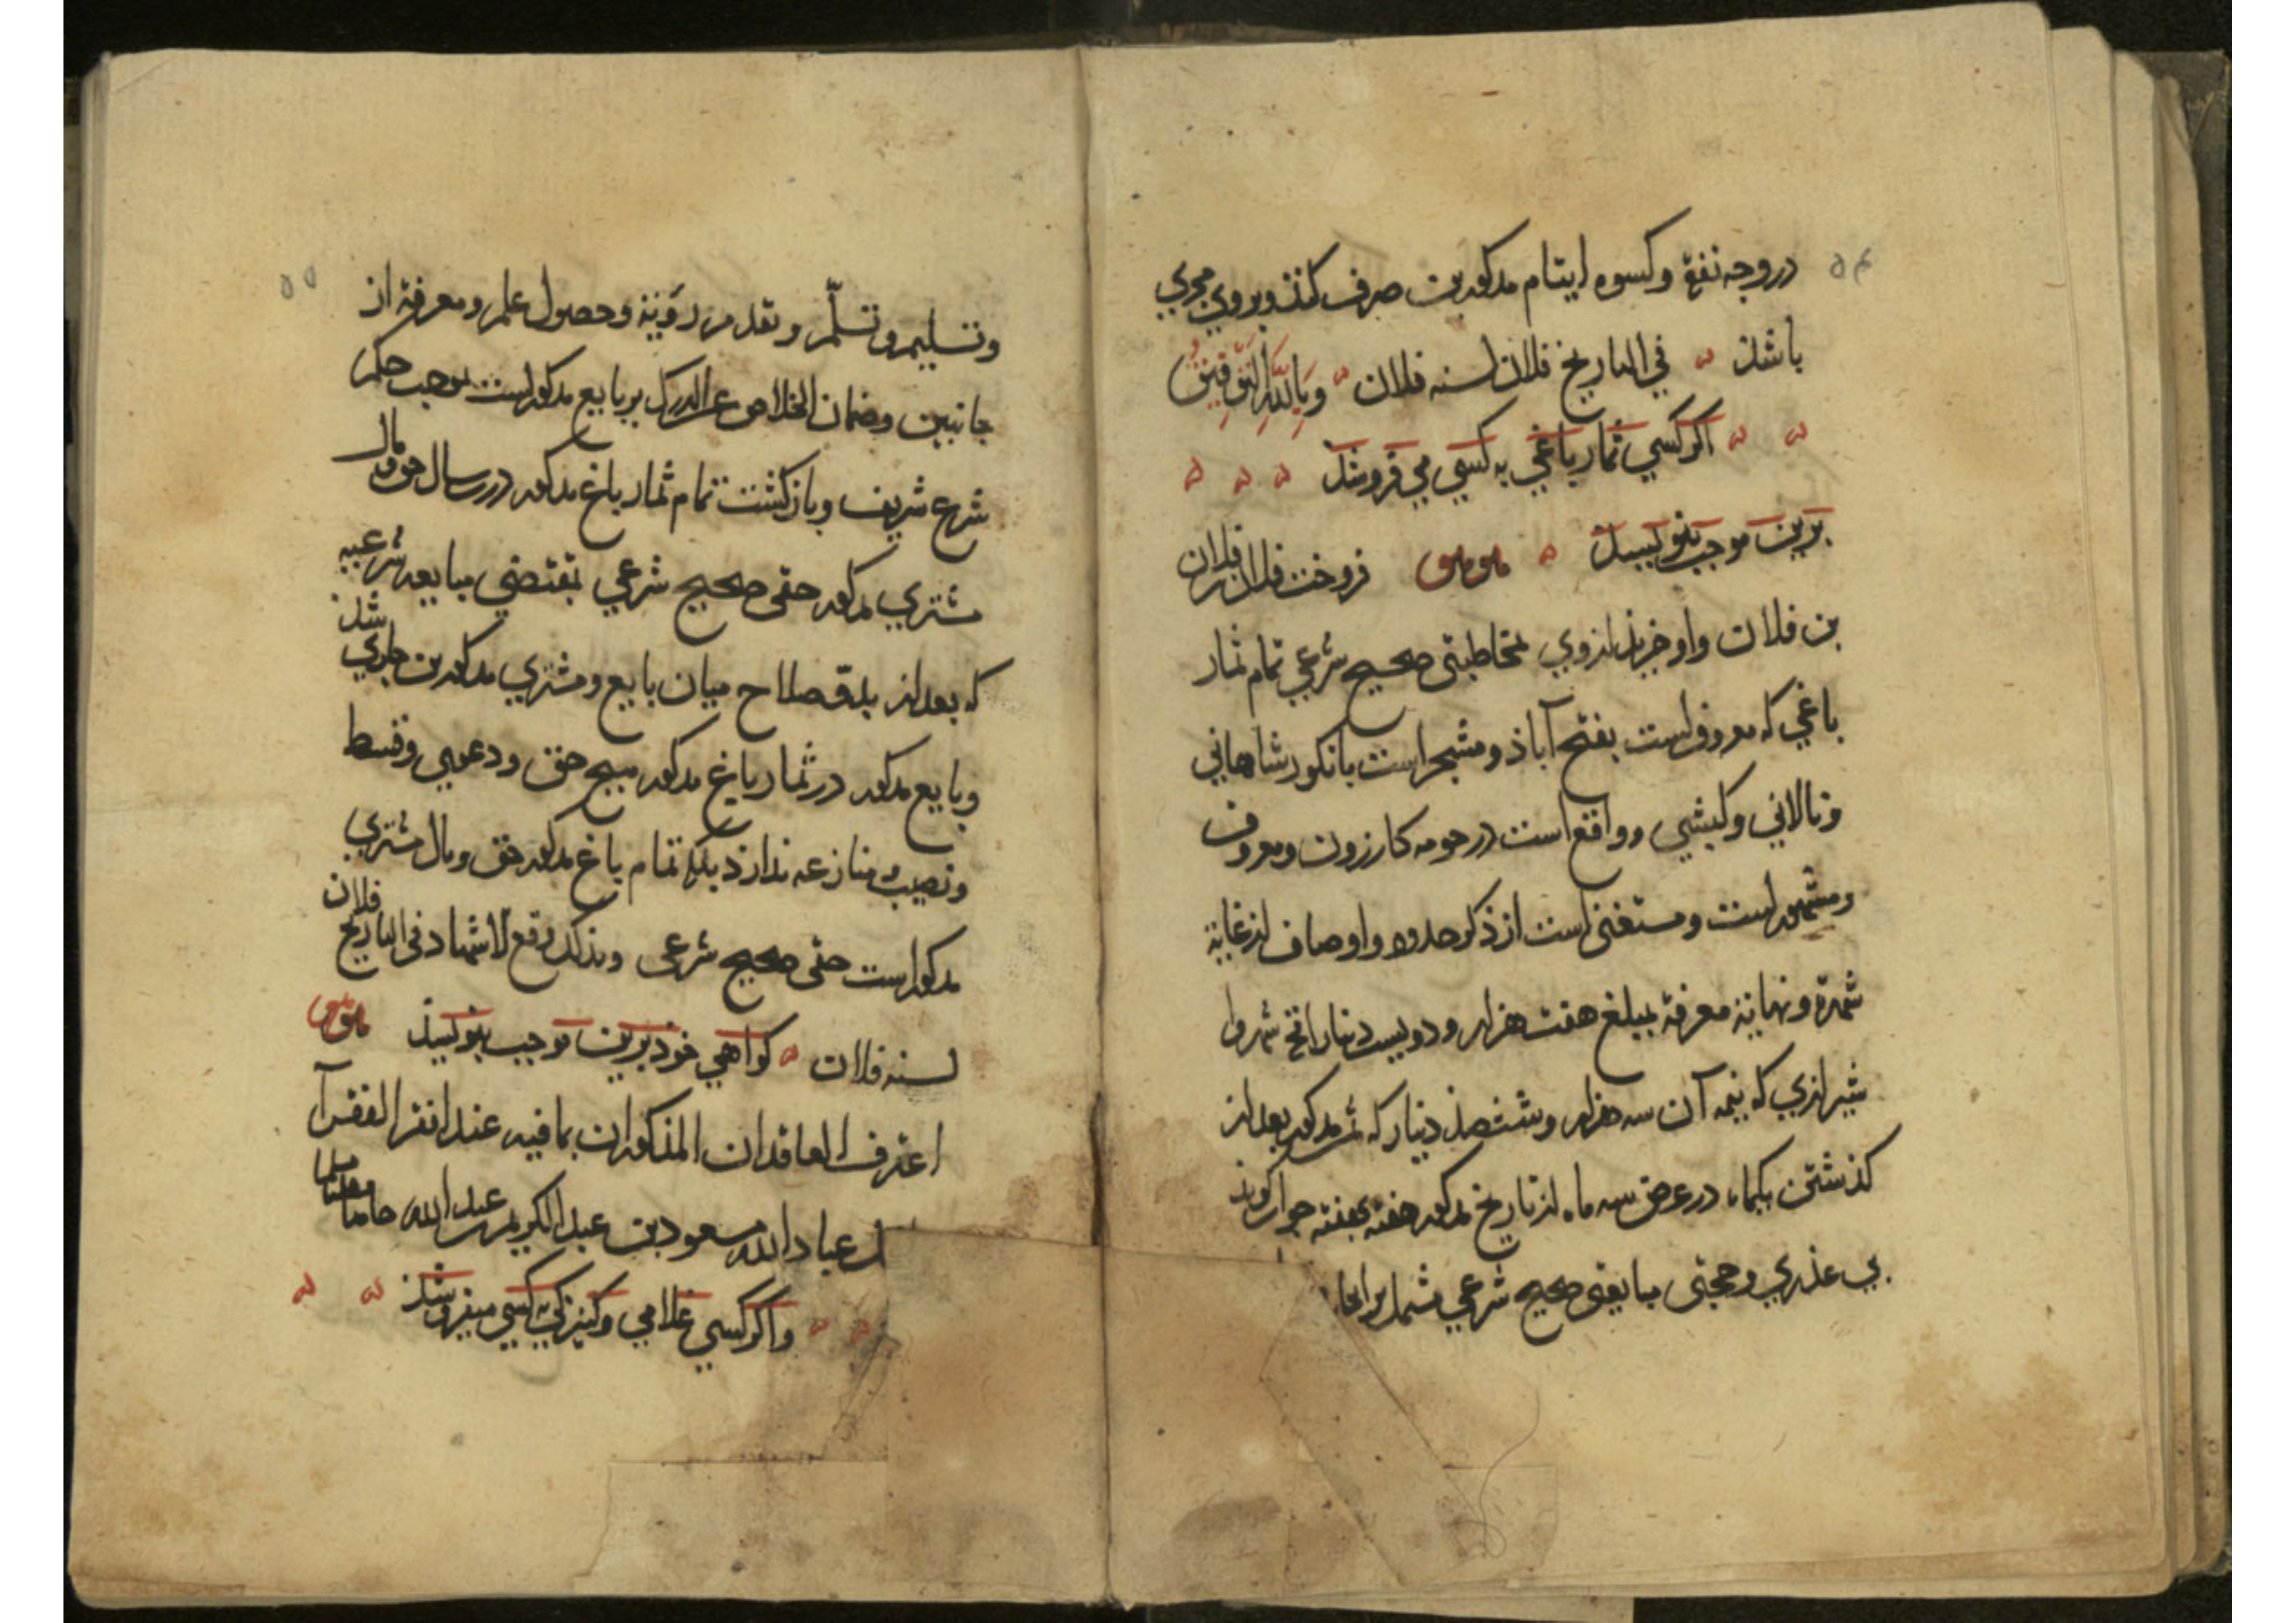 ۵۴
در وجه نفقه وکسوه ایتام مذکورین صرف کنذ وبروی مجری
باشذ في التاریخ فلان لسنه فلان وَبِاللَّهِ التَّوْفِيقُ
اکر کسي ثمار باغي به کسي مي فروشذ
برین موجب بنویسذ فروخت فلان بن فلان
بن فلان واو خریذ از وي بمخاطبتی صحیح شرعي تمام ثمار
باغي که معروفست بفتح آباذ ومشجر است بانکور شاهاني
ونالاني وکیشي وواقع است در حومه کازرون ومعروف
ومشهور است ومستغنی است از ذکر حدود واوصاف از غایة
شهرة ونهایة معرفة بمبلغ هفت هزار ودویست دینار رائج شهروا
شیرازي که نیمه آن سه هزار وششصذ دینار که ثمن مذکور بعد از
کذشتن یکماه در عرض سه ماه از تاریخ مذکور هفته بهفته جواب کویذ
بي عذري وحجتی مبایعتی صحیح شرعي مشتمل بر ایجاب
۵۵
وتسلیم وتسلّم وتقدم رؤیة وحصول علم ومعرفة از
جانبین وضمان الخلاص عن الدرک بر بایع مذکور است بموجب حکم
شرع شریف وباز کشت تمام ثمار باغ مذکور درین سال حق ومال
مشتري مذکور حقی صحیح شرعي بمقتضي مبایعه شرعیه
که بعد از بدو صلاح میان بایع ومشتري مذکورین جاري شذ
وبایع مذکور در ثمار باغ مذکور هیچ حق ودعوي وقسط
ونصیب ومنازعه نذارذ بلکه تمام باغ مذکور حق ومال مشتري
مذکور است حقی صحیح شرعی وبذلک وقع الاشهاد في التاریخ فلان
لسنه فلان کواهي خوذ برین موجب بنویسذ
اعترف العاقدان المذکوران بما فیه عند افقر الفقرآ
من عباد الله مسعود بن عبد الکریم بن عبد الله حامدا مصلیا
واکر کسي غلامي وکنیزکي به کسي میفروشذ